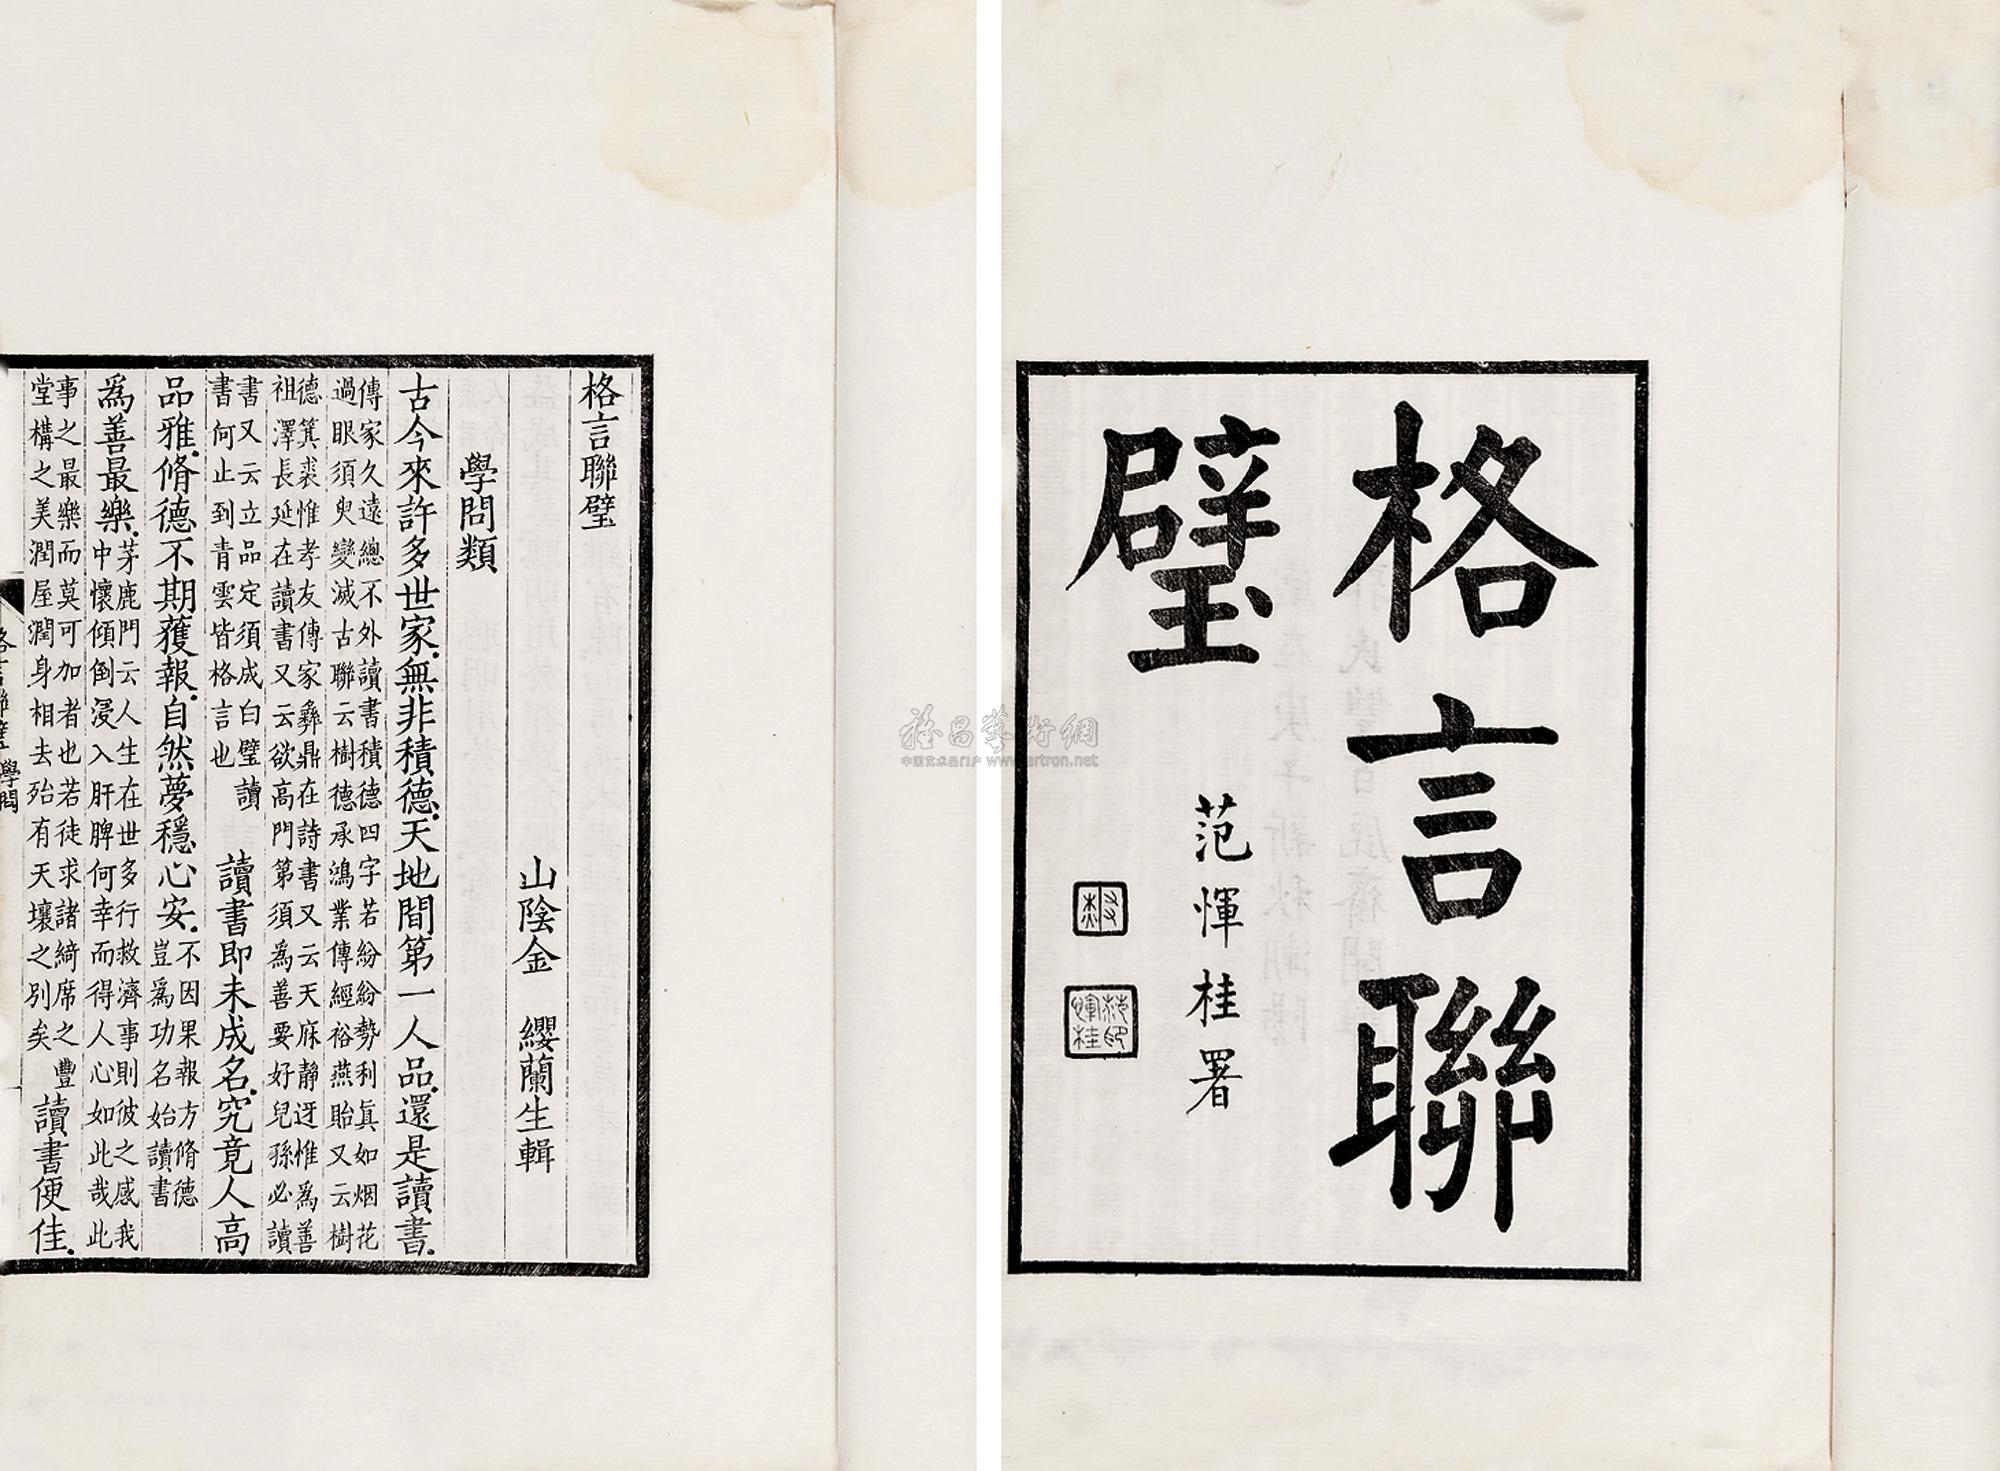 格言聯
璧
范惲桂署
格言聯璧
山陰金　纓蘭生輯
學問類
古今來許多世家無非積德天地間第一人品還是讀書
傳家久遠總不外讀書積德四字若紛紛勢利真如烟花
過眼須臾變滅古聯云樹德承鴻業傳經裕燕貽又云樹
德箕裘惟孝友傳家彝鼎在詩書又云天庥靜迓惟為善
祖澤長延在讀書又云欲高門第須為善要好兒孫必讀
書又云立品定須成白璧讀
書何止到青雲皆格言也
讀書即未成名究竟人高
品雅脩德不期獲報自然夢穩心安
不因果報方脩德
豈為功名始讀書
為善最樂
茅鹿門云人生在世多行救濟事則彼之感我
中懷傾倒浸入肝脾何幸而得人心如此哉此
事之最樂而莫可加者也若徒求諸綺席之豐
堂構之美潤屋潤身相去殆有天壤之別矣
讀書便佳
格言聯璧 學問
中国艺术品门户 www.artron.net